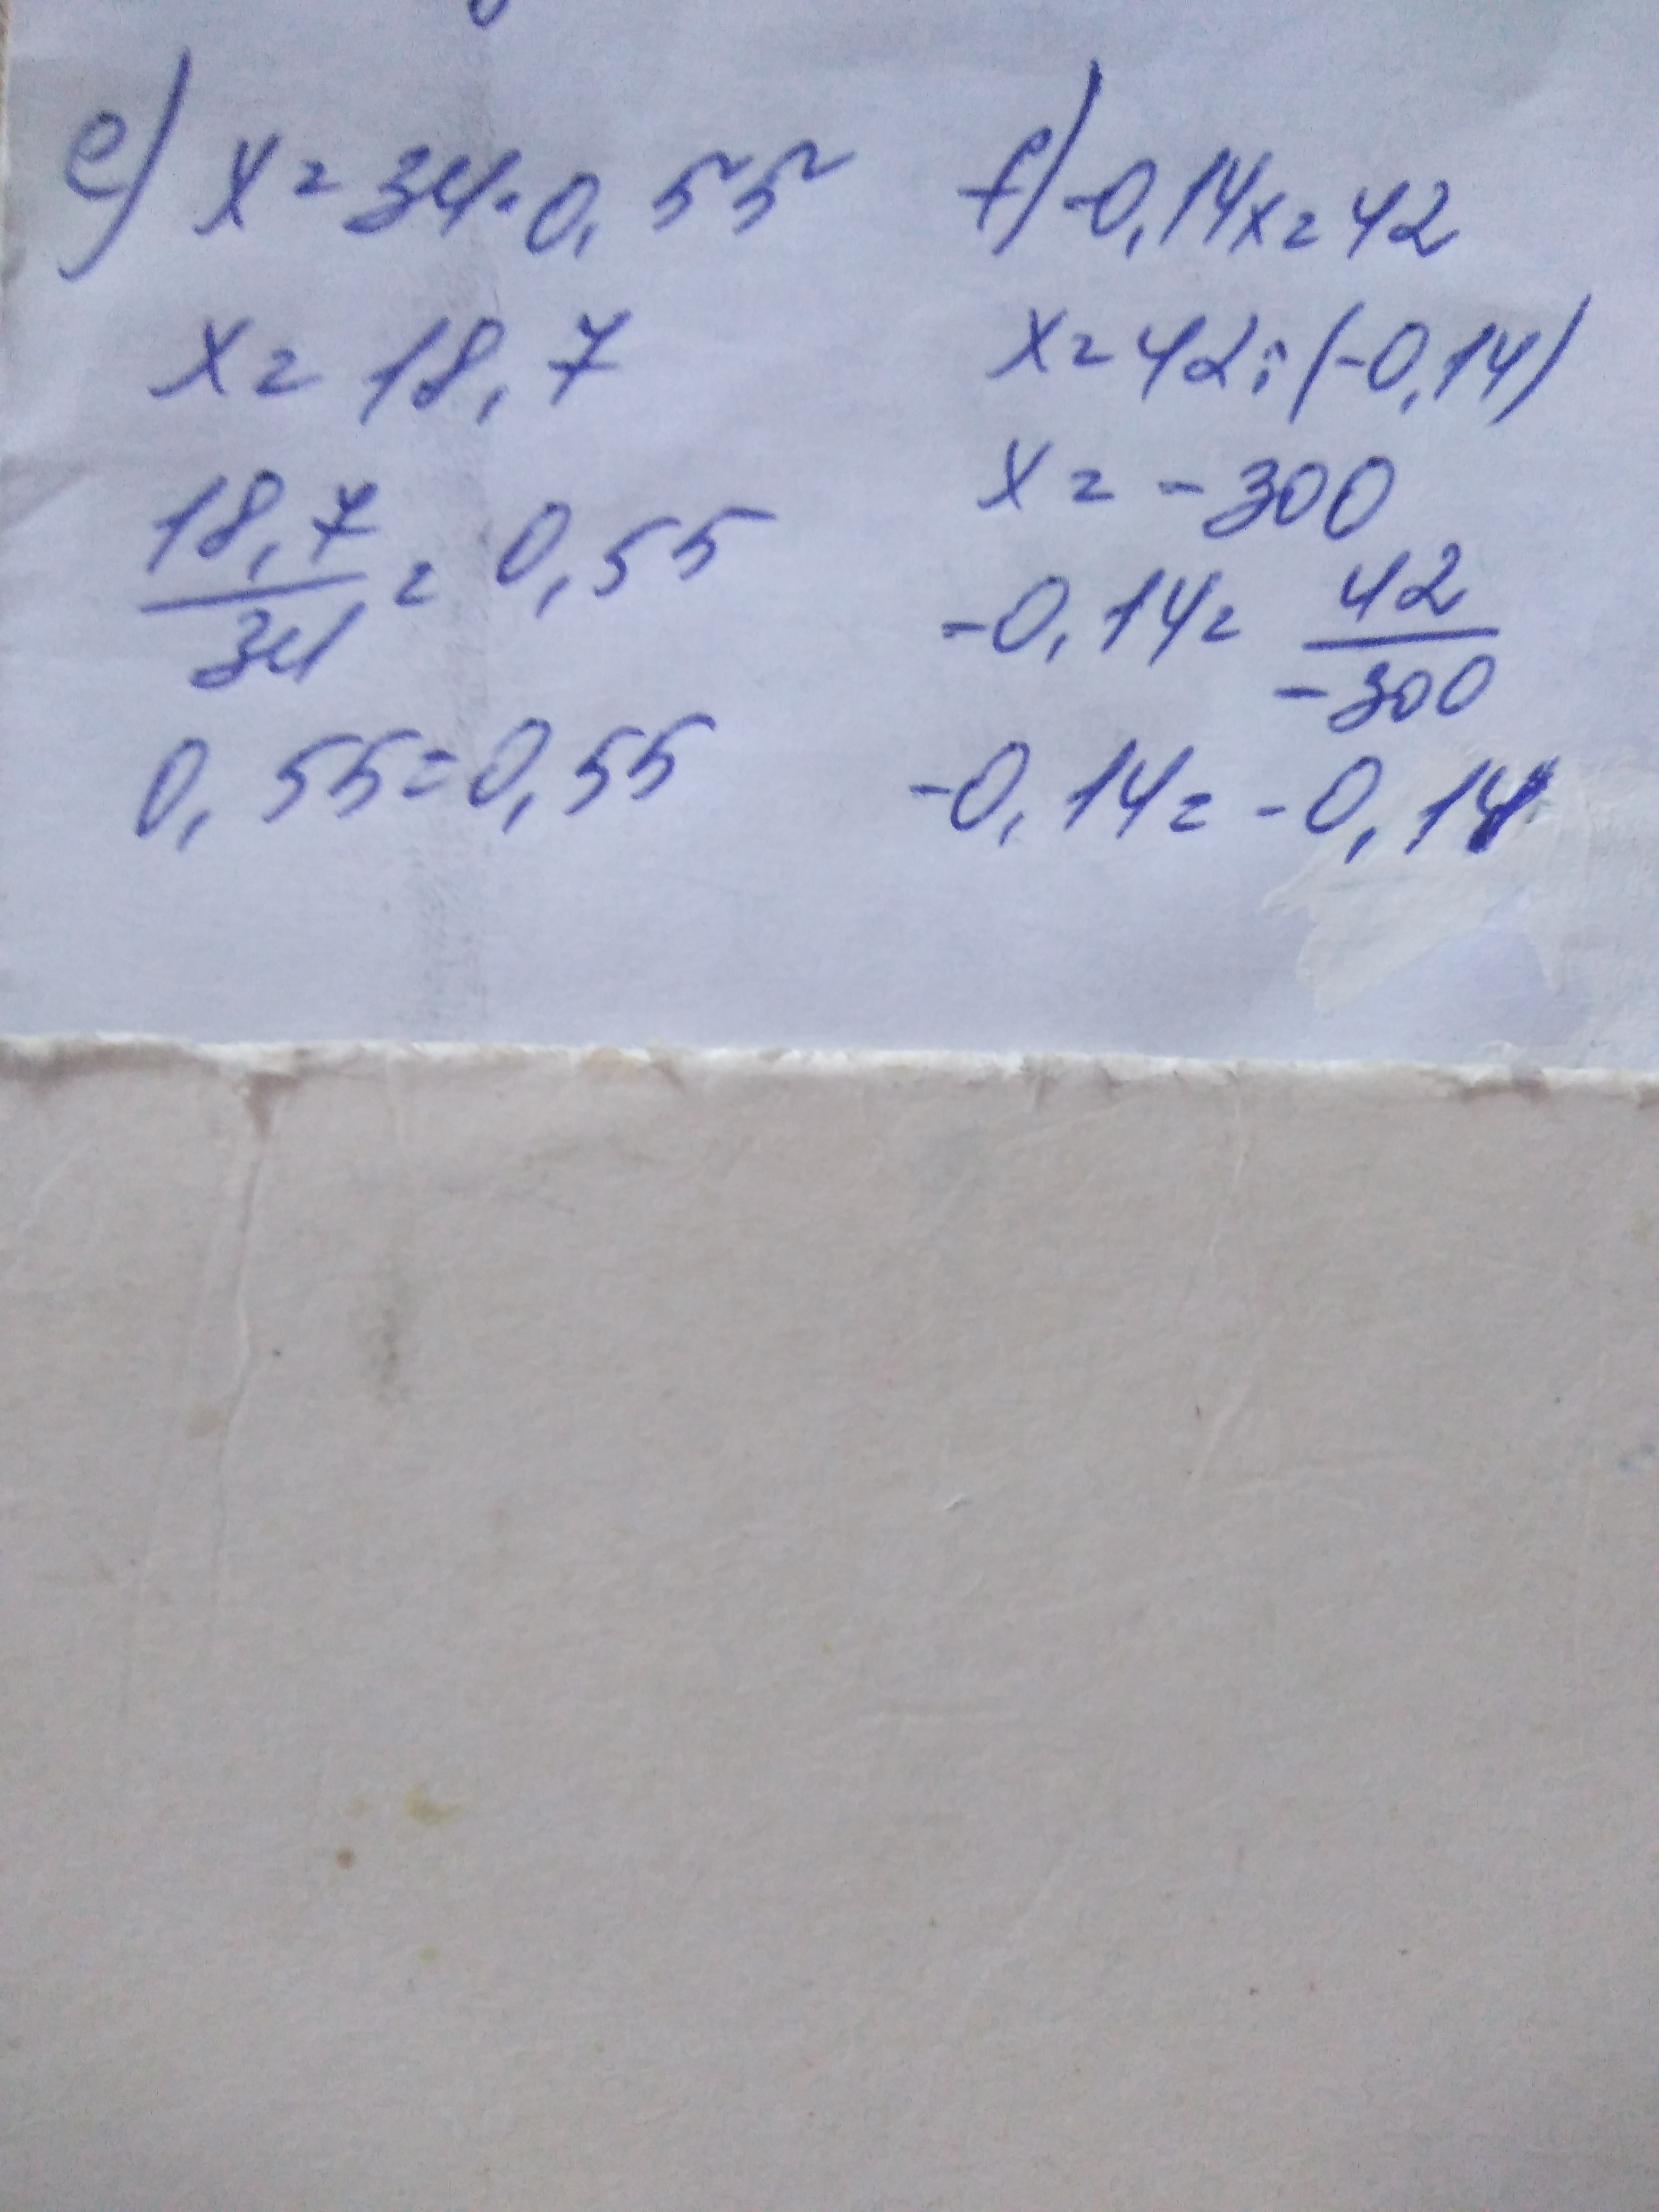 e) x = 34 · 0,55
x = 18,7
18,7/34 = 0,55
0,55 = 0,55
f) -0,14x = 42
x = 42 : (-0,14)
x = -300
-0,14 = 42/-300
-0,14 = -0,14